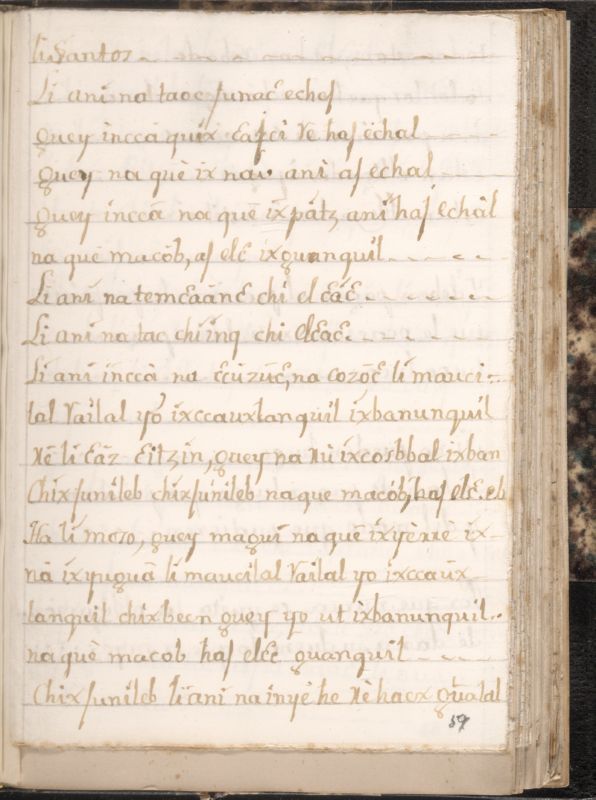 li Santos
Li ani na taoc junac̃ echej
quey incca quix Ɛajci re haj echal
quey na què ix nau ani aj echal
quey incca na que ixpatz, ani haj echal
na què macob, aj elc̃ ixguanquil
Li ani na temƐaanc̃ chi elƐac̃
Li ani na tac chi inq chi elƐac̃
Li ani incca na c̃cuzuc̃, na cozoc̃ li mauci-
lal Vailal yo ixccauxlanquil ixbanunquil
Xè li Ɛaz Ɛitzin, quey na Xu ixcosbbal ixban
Chixjunileb chixjunileb naque macob, haj elc̃. eb
Ha li moso, quey magui naquè ixyèxè ix-
na ixyuguà li maucilal Vailal yo ixccaux
lanquil chixbeen quey yo ut ixbanunquil
na què macob haj elc̃c guanquil
Chixjunileb li ani na inyè he Xè haex gualal
59